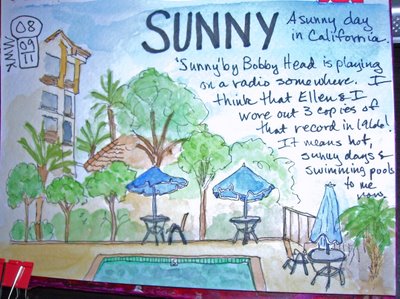 SUNNY
A sunny day
in California.
"Sunny" by Bobby Head is playing
on a radio somewhere. I
think that Ellen & I
wore out 3 copies of
that record in 1966!
It means hot,
sunny days &
swimming pools
to me
now.
08
09
11